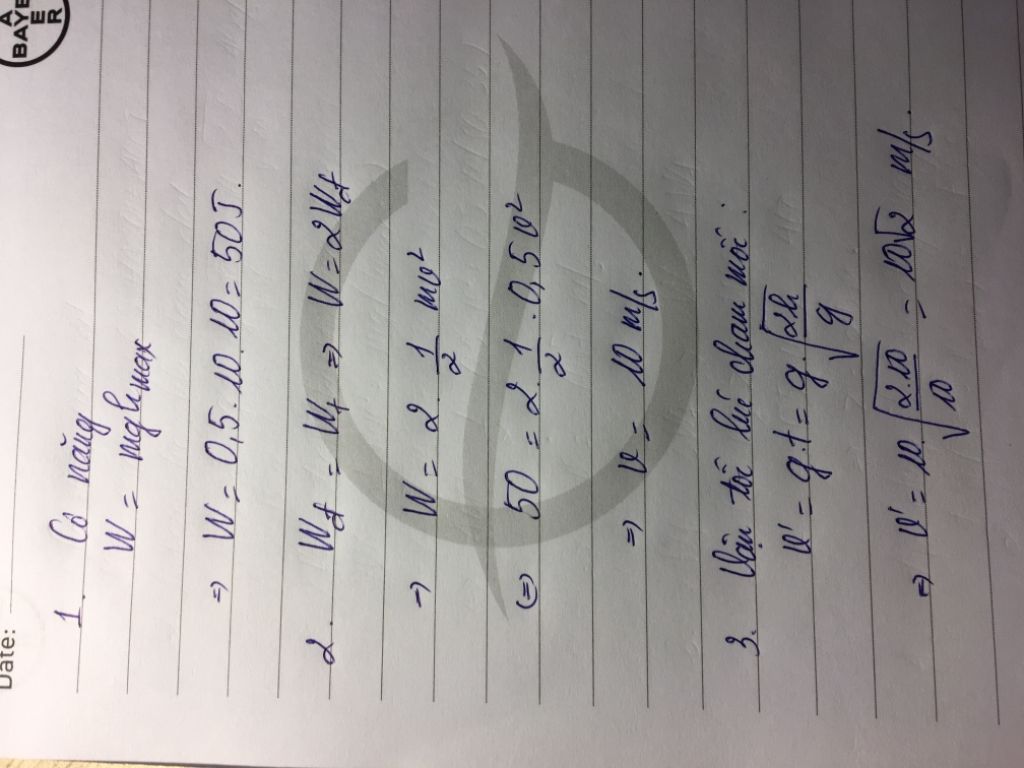 A
BAYE
ER
Date:
1. Cơ năng
W = mgh max
=> W = 0,5. 10. 10 = 50J.
2. Wđ = Wt => W = 2Wđ
=> W = 2. 1/2 mv²
(=) 50 = 2. 1/2 . 0,5v²
=> v = 10 m/s.
3. Vận tốc lúc chạm mốc :
v' = g.t = g.√(2h/g)
=> v' = 10 √(2.10/10) = 10√2 m/s.